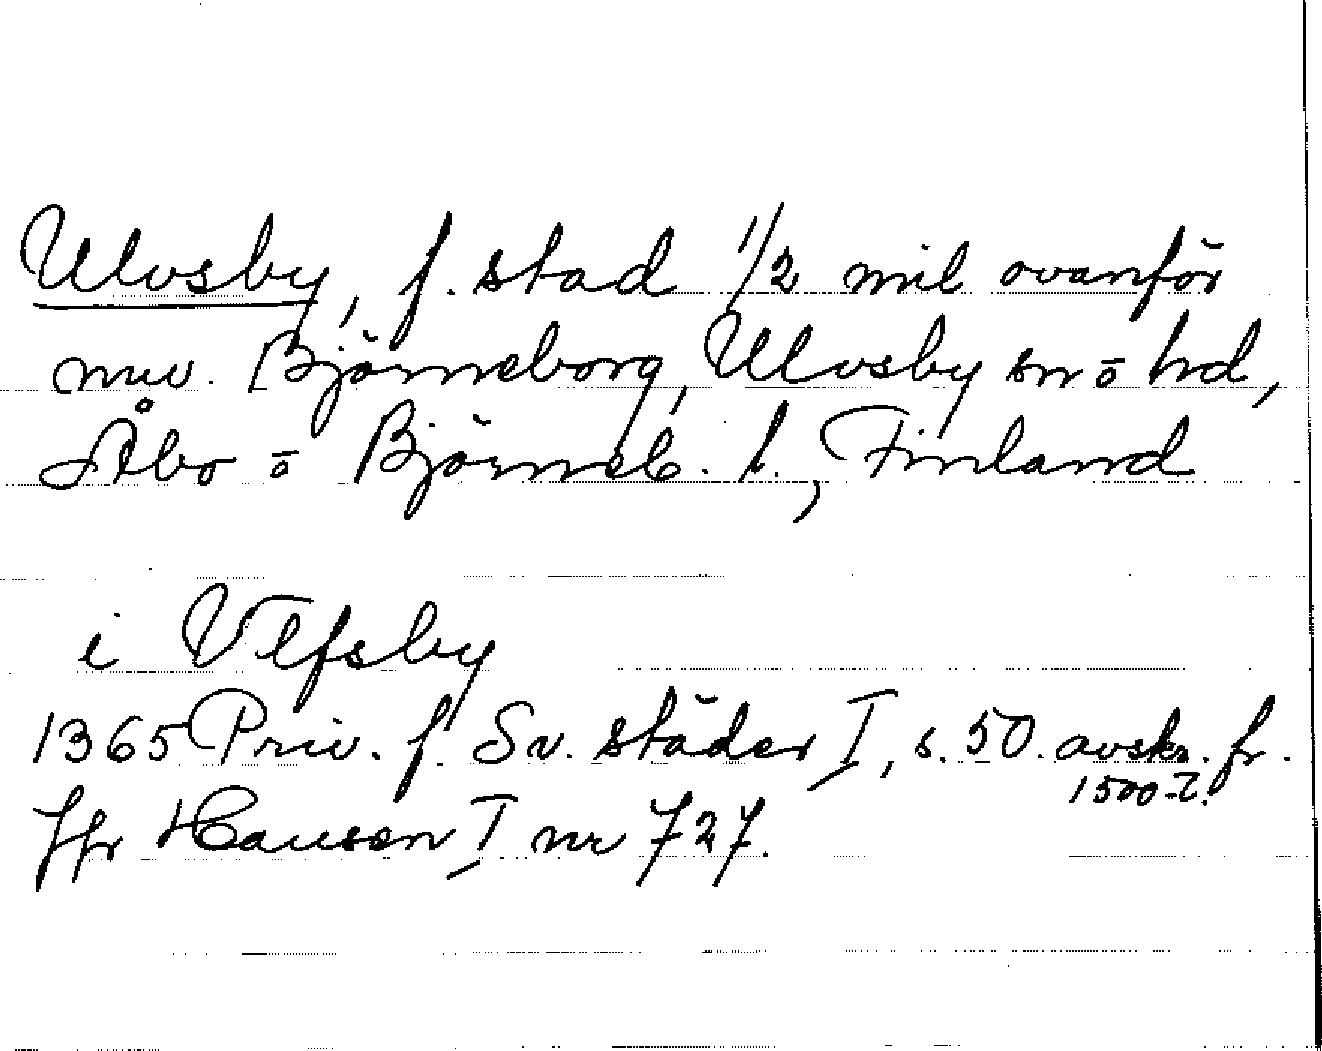 Ulvsby, f. stad 1/2 mil ovanför
nuv. Björneborg, Ulvsby sn o hd,
Åbo o Björneb. l., Finland
i Vlfsby
1365 Priv. f. Sv. städer I, s. 50. avskr. fr.
1500-t.
Jfr Hausen I nr 727.